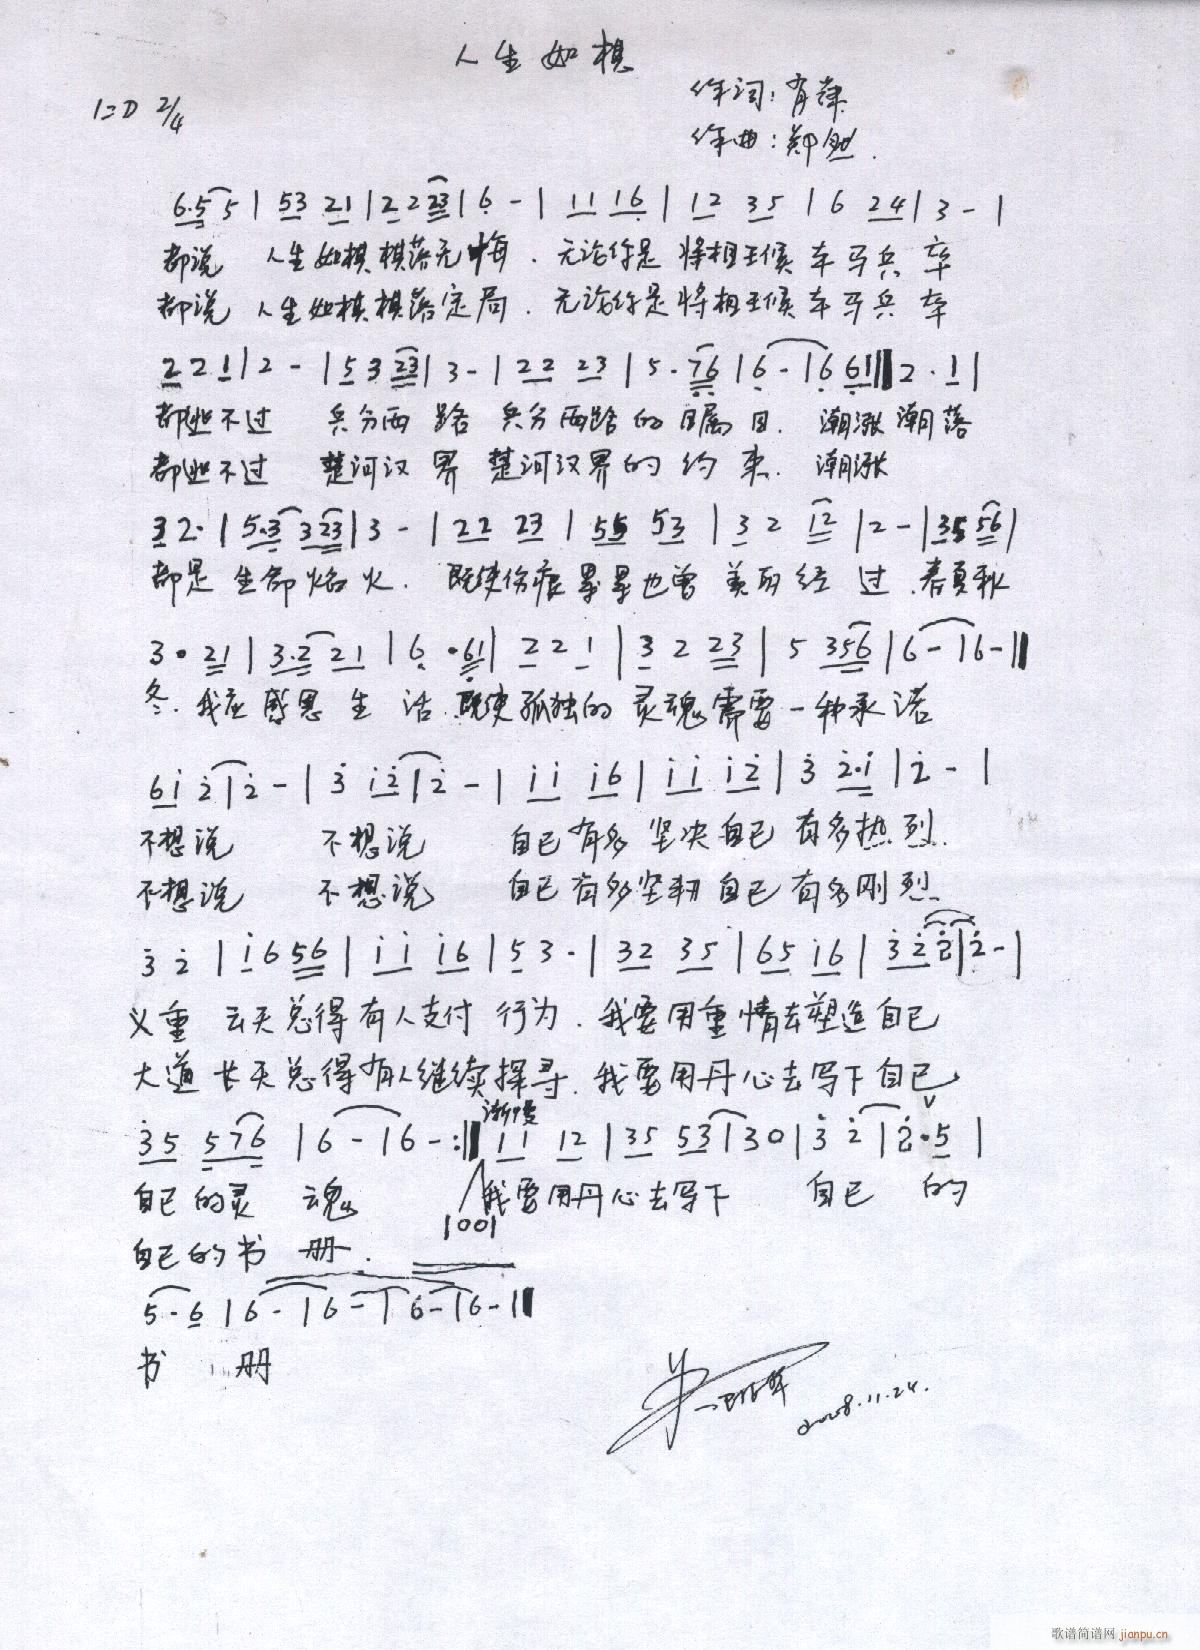 人生如棋
作词:肖萍
1=D 2/4
作曲:郑
6·5 5 | 53 21 | 2 2 23 | 6 - | 11 16 | 12 35 | 6 24 | 3 - |
都说 人生如棋棋落无悔. 无论你是将相王候车马兵卒
都说 人生如棋棋落定局. 无论你是将相王候车马兵卒
2 2 1 | 2 - | 5 3 23 | 3 - | 22 23 | 5 · 76 | 6 - | 6 61 ‖ 2 · 1 |
都逃不过 兵分两路 兵分两路的瞩目. 潮涨潮落
都逃不过 楚河汉界 楚河汉界的约束. 潮涨
3 2· | 5·3 3 23 | 3 - | 22 23 | 55 53 | 3 2 12 | 2 - | 35 56 |
都是生命焰火. 既使伤痕累累也曾美丽经过.春夏秋
3 · 21 | 3·2 21 | 6 · 61 | 2 2 1 | 3 2 23 | 5 356 | 6 - | 6 - ‖
冬.我应感恩生活.既使孤独的灵魂需要一种承诺
6i 2̇ | 2̇ - | 3̇ i2̇ | 2̇ - | ii i6 | ii i2̇ | 3̇ 2̇·i | 2̇ - |
不想说 不想说 自己有多坚决自己有多热烈.
不想说 不想说 自己有多坚韧自己有多刚烈.
3̇ 2̇ | i 6 56 | ii i6 | 5 3 · | 32 35 | 65 i6 | 3̇ 2̇ 2̇ | 2̇ - |
义重云天总得有人支付行为.我要用重情去塑造自己
大道长天总得有人继续探寻.我要用丹心去写下自己
渐慢
3̇5 576 | 6 - | 6 - :‖ 11 12 | 35 53 | 30 | 3̇ 2̇ | 2̇ · 5 |
自己的灵魂 我要用丹心去写下 自己的
1001
自己的书册.
5 · 6 | 6 - | 6 - | 6 - | 6 - ‖
书册
2008.11.24.
歌谱简谱网 jianpu.cn